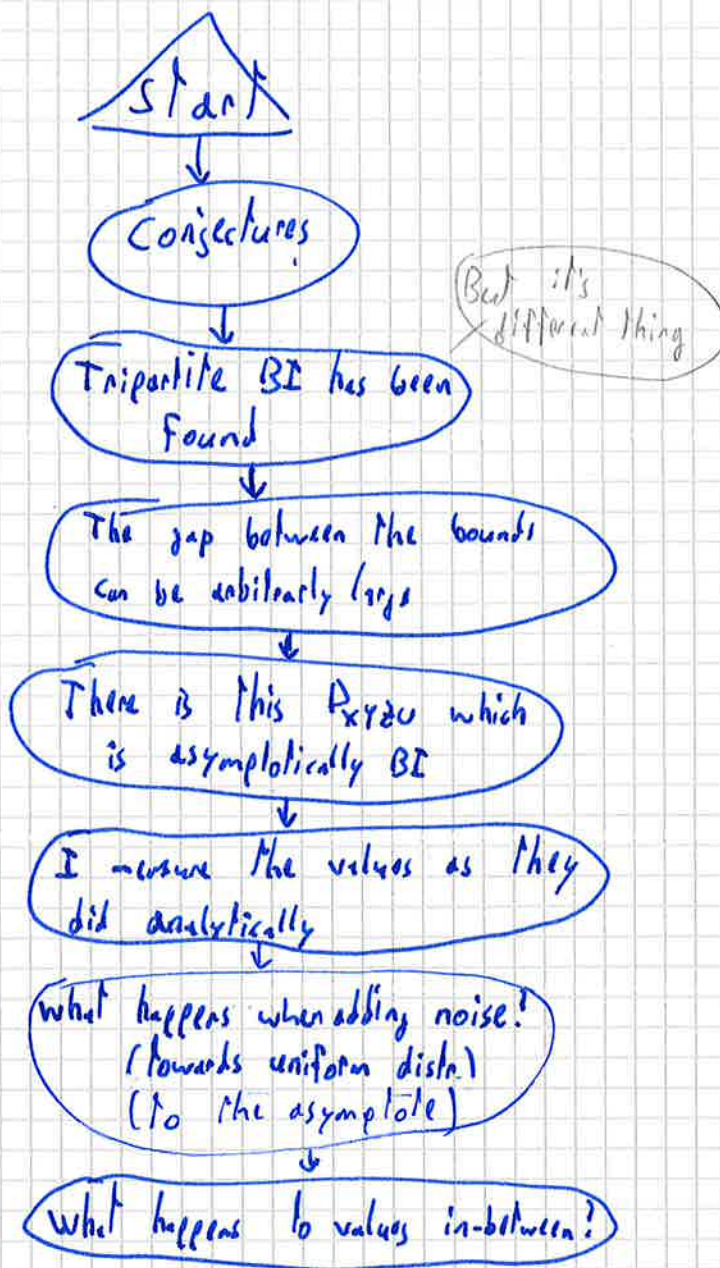 Start
Conjectures
But it's
different thing
Tripartite BI has been
found
The gap between the bounds
can be arbitrarly large
There is this P_XYZU which
is asymptotically BI
I measure the values as they
did analytically
What happens when adding noise?
(towards uniform distr.)
(to the asymptote)
What happens to values in-between?